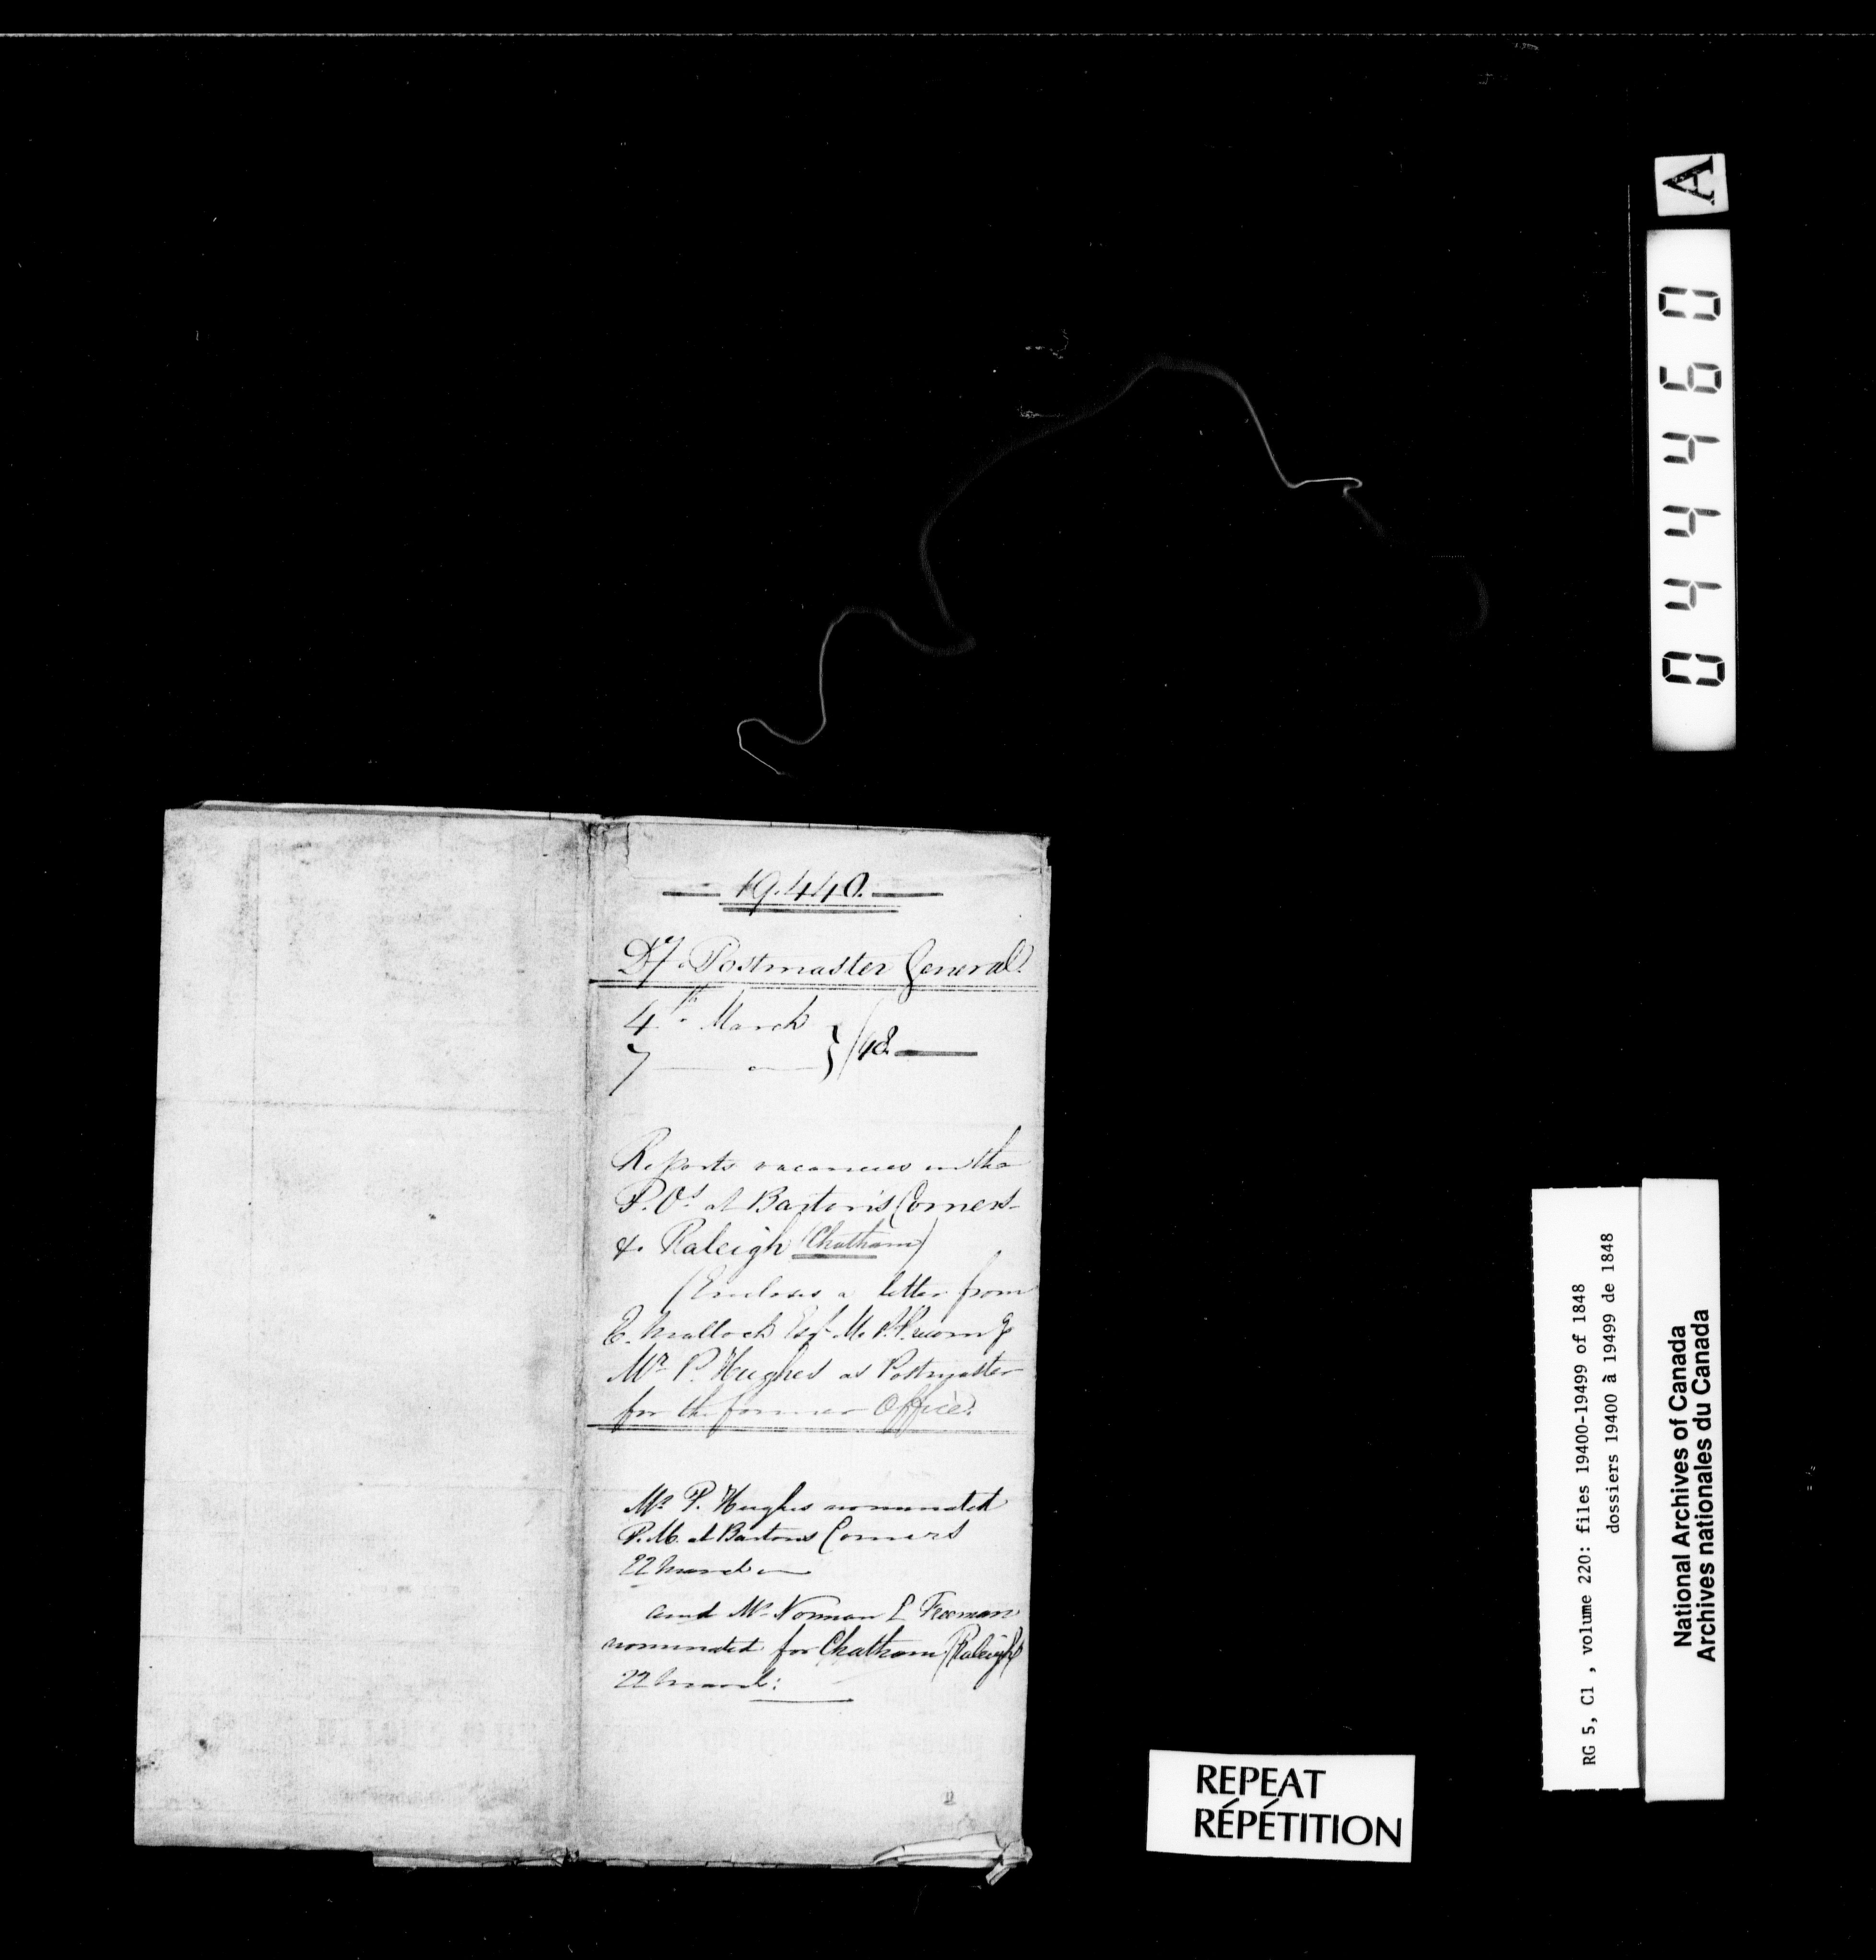 19.440.
Dy. Postmaster General.
4th March
7 — " — } /48.
Reports vacancies in the
P. Os at Barton's Corners
&. Raleigh (Chatham)
(Encloses a letter from
E. Malloch Esqr M. P. P. recomg
Mr P. Hughes as Postmaster
for the former Office.
Mr P. Hughes nominated
P. M. at Bartons Corners
22 March
and Mr Norman L Freeman
nominated for Chatham (Raleigh)
22 March:
A
064440
RG 5, C1 , volume 220: files 19400-19499 of 1848
dossiers 19400 à 19499 de 1848
National Archives of Canada
Archives nationales du Canada
REPEAT
RÉPÉTITION